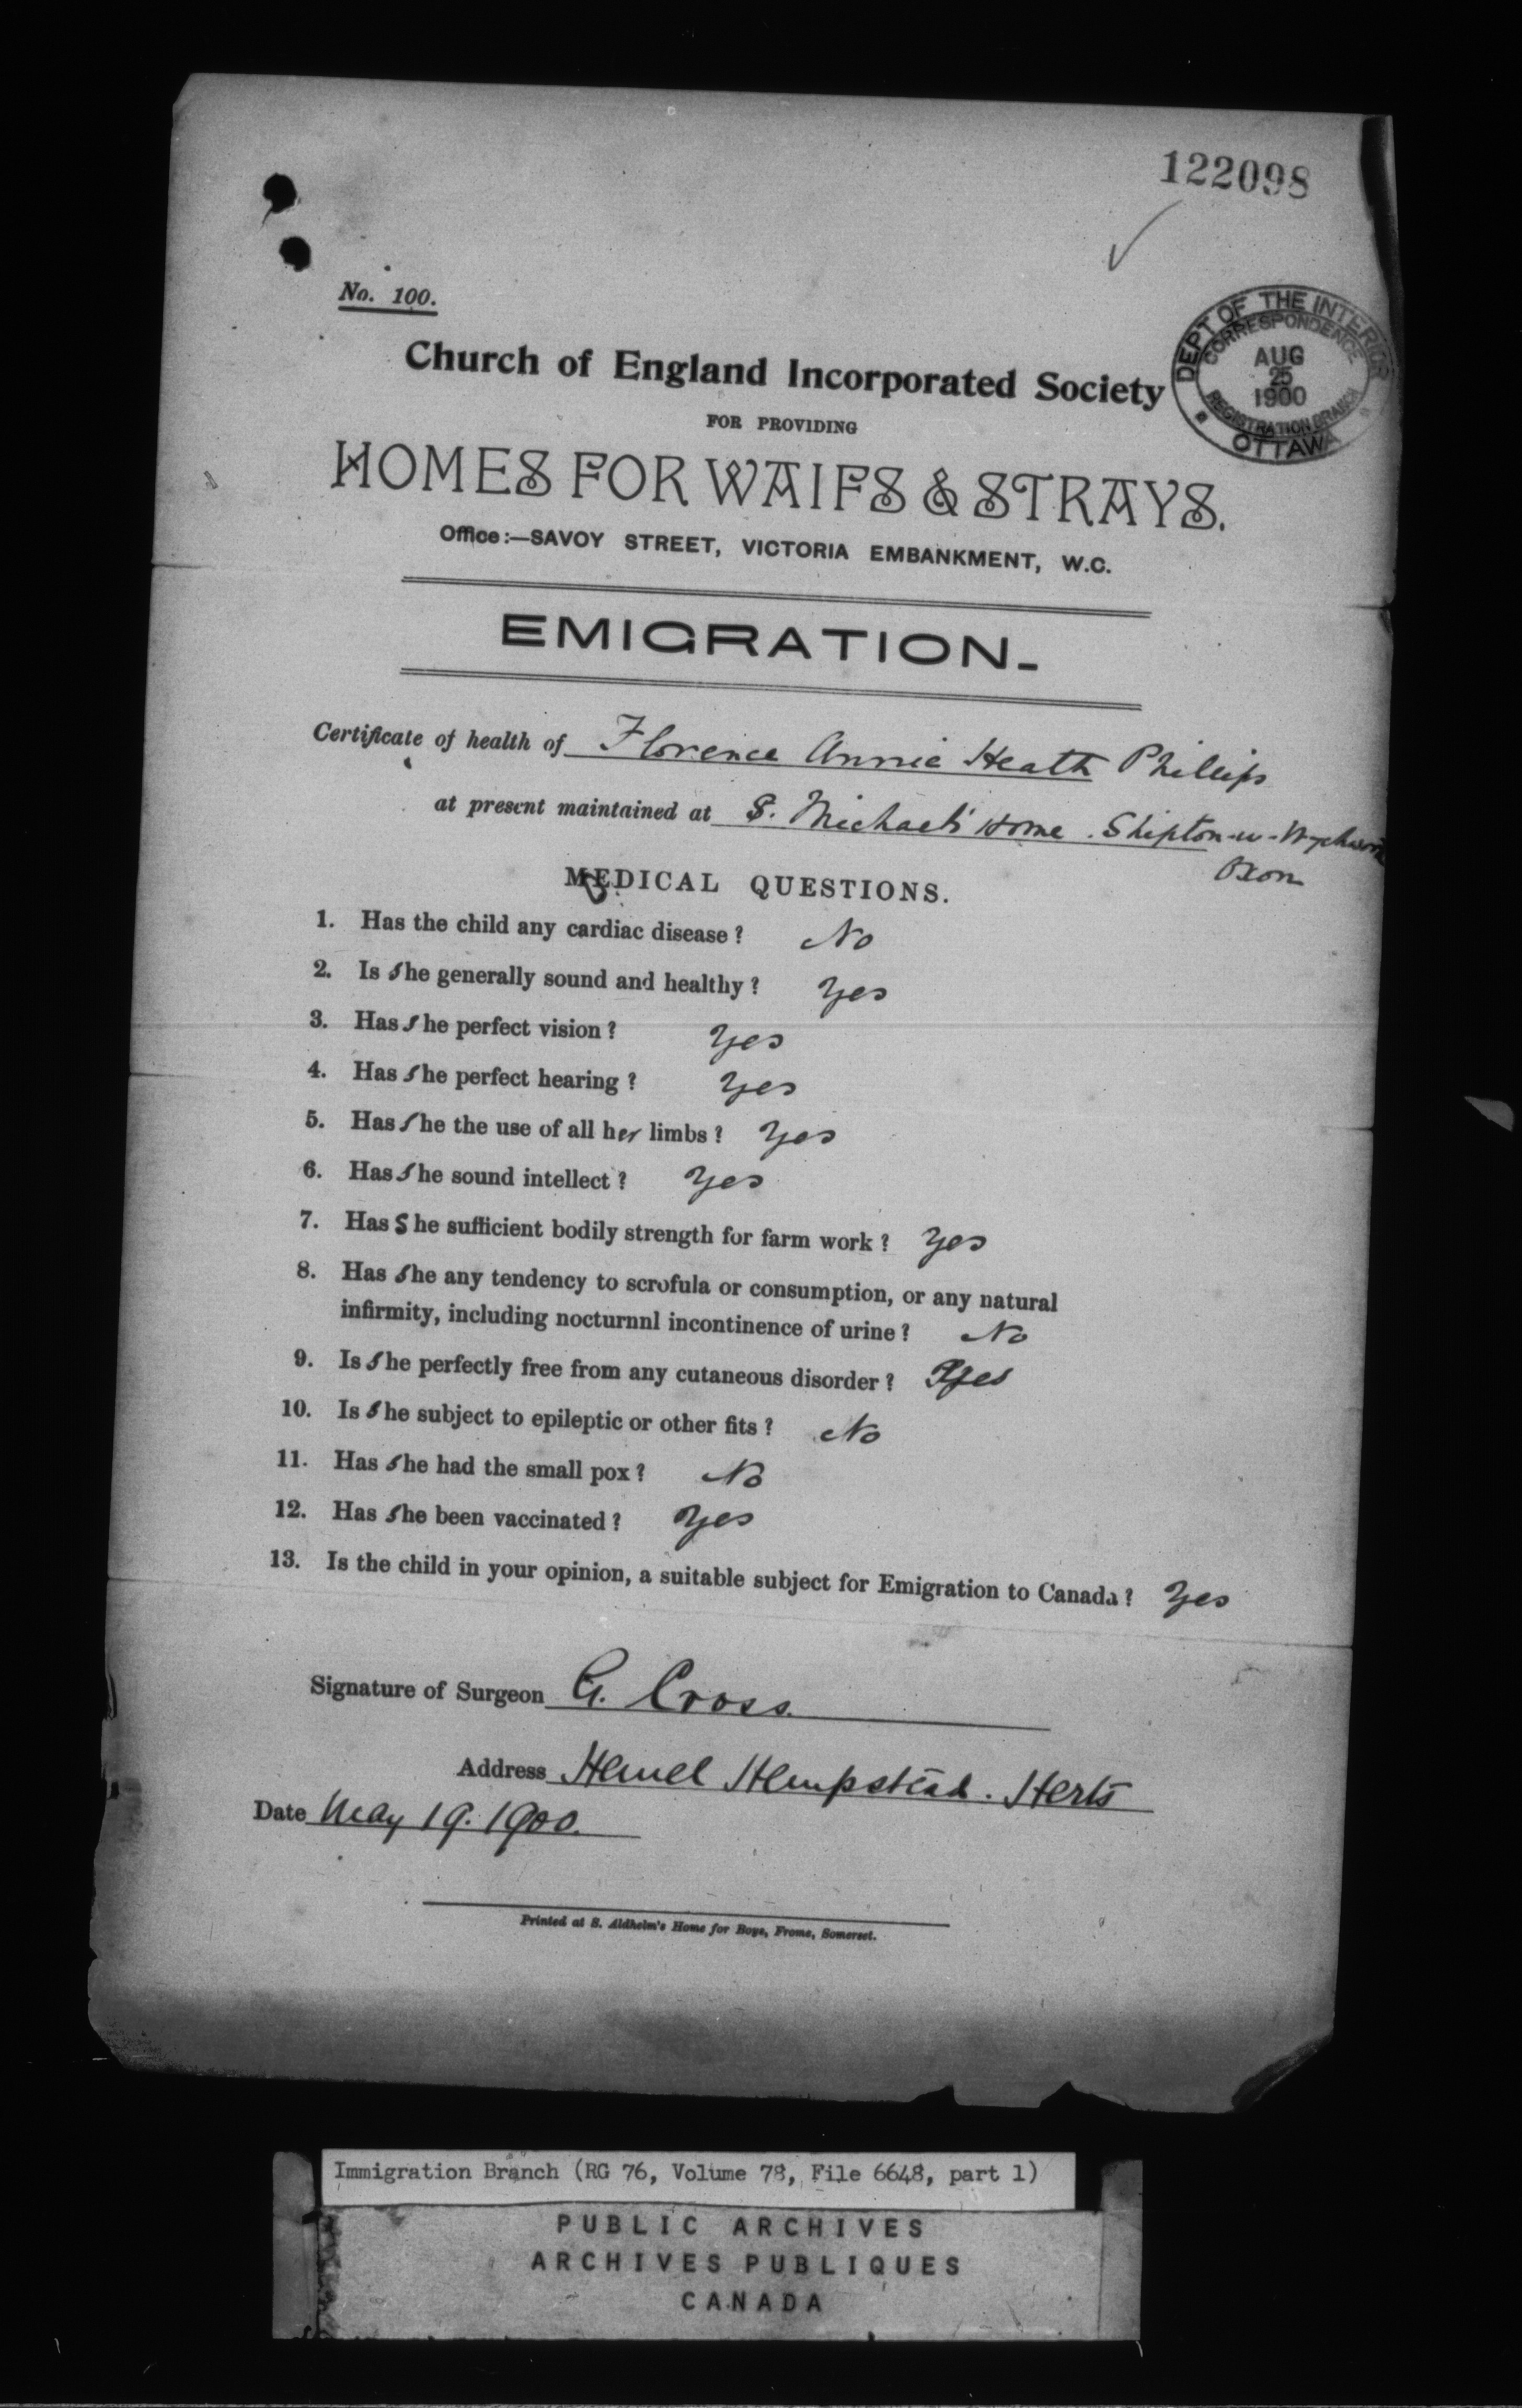 122098
No. 100.
DEPT OF THE INTERIOR
CORRESPONDENCE
AUG
25
1900
REGISTRATION BRANCH
OTTAWA
Church of England Incorporated Society
FOR PROVIDING
HOMES FOR WAIFS & STRAYS.
Office:—SAVOY STREET, VICTORIA EMBANKMENT, W.C.
EMIGRATION-
Certificate of health of Florence Annie Heath Phillips
at present maintained at S. Michael's Home. Shipton-u-Wychwood
Oxon
MEDICAL QUESTIONS.
1. Has the child any cardiac disease? No
2. Is she generally sound and healthy? Yes
3. Has she perfect vision? Yes
4. Has she perfect hearing? Yes
5. Has she the use of all her limbs? Yes
6. Has she sound intellect? Yes
7. Has She sufficient bodily strength for farm work? Yes
8. Has she any tendency to scrofula or consumption, or any natural
infirmity, including nocturnnl incontinence of urine? No
9. Is she perfectly free from any cutaneous disorder? Yes
10. Is she subject to epileptic or other fits? No
11. Has she had the small pox? No
12. Has she been vaccinated? Yes
13. Is the child in your opinion, a suitable subject for Emigration to Canada? Yes
Signature of Surgeon G. Cross.
Address Hemel Hempstead. Herts
Date May 19. 1900.
Printed at S. Aldhelm's Home for Boys, Frome, Somerset.
Immigration Branch (RG 76, Volume 78, File 6648, part 1)
PUBLIC ARCHIVES
ARCHIVES PUBLIQUES
CANADA